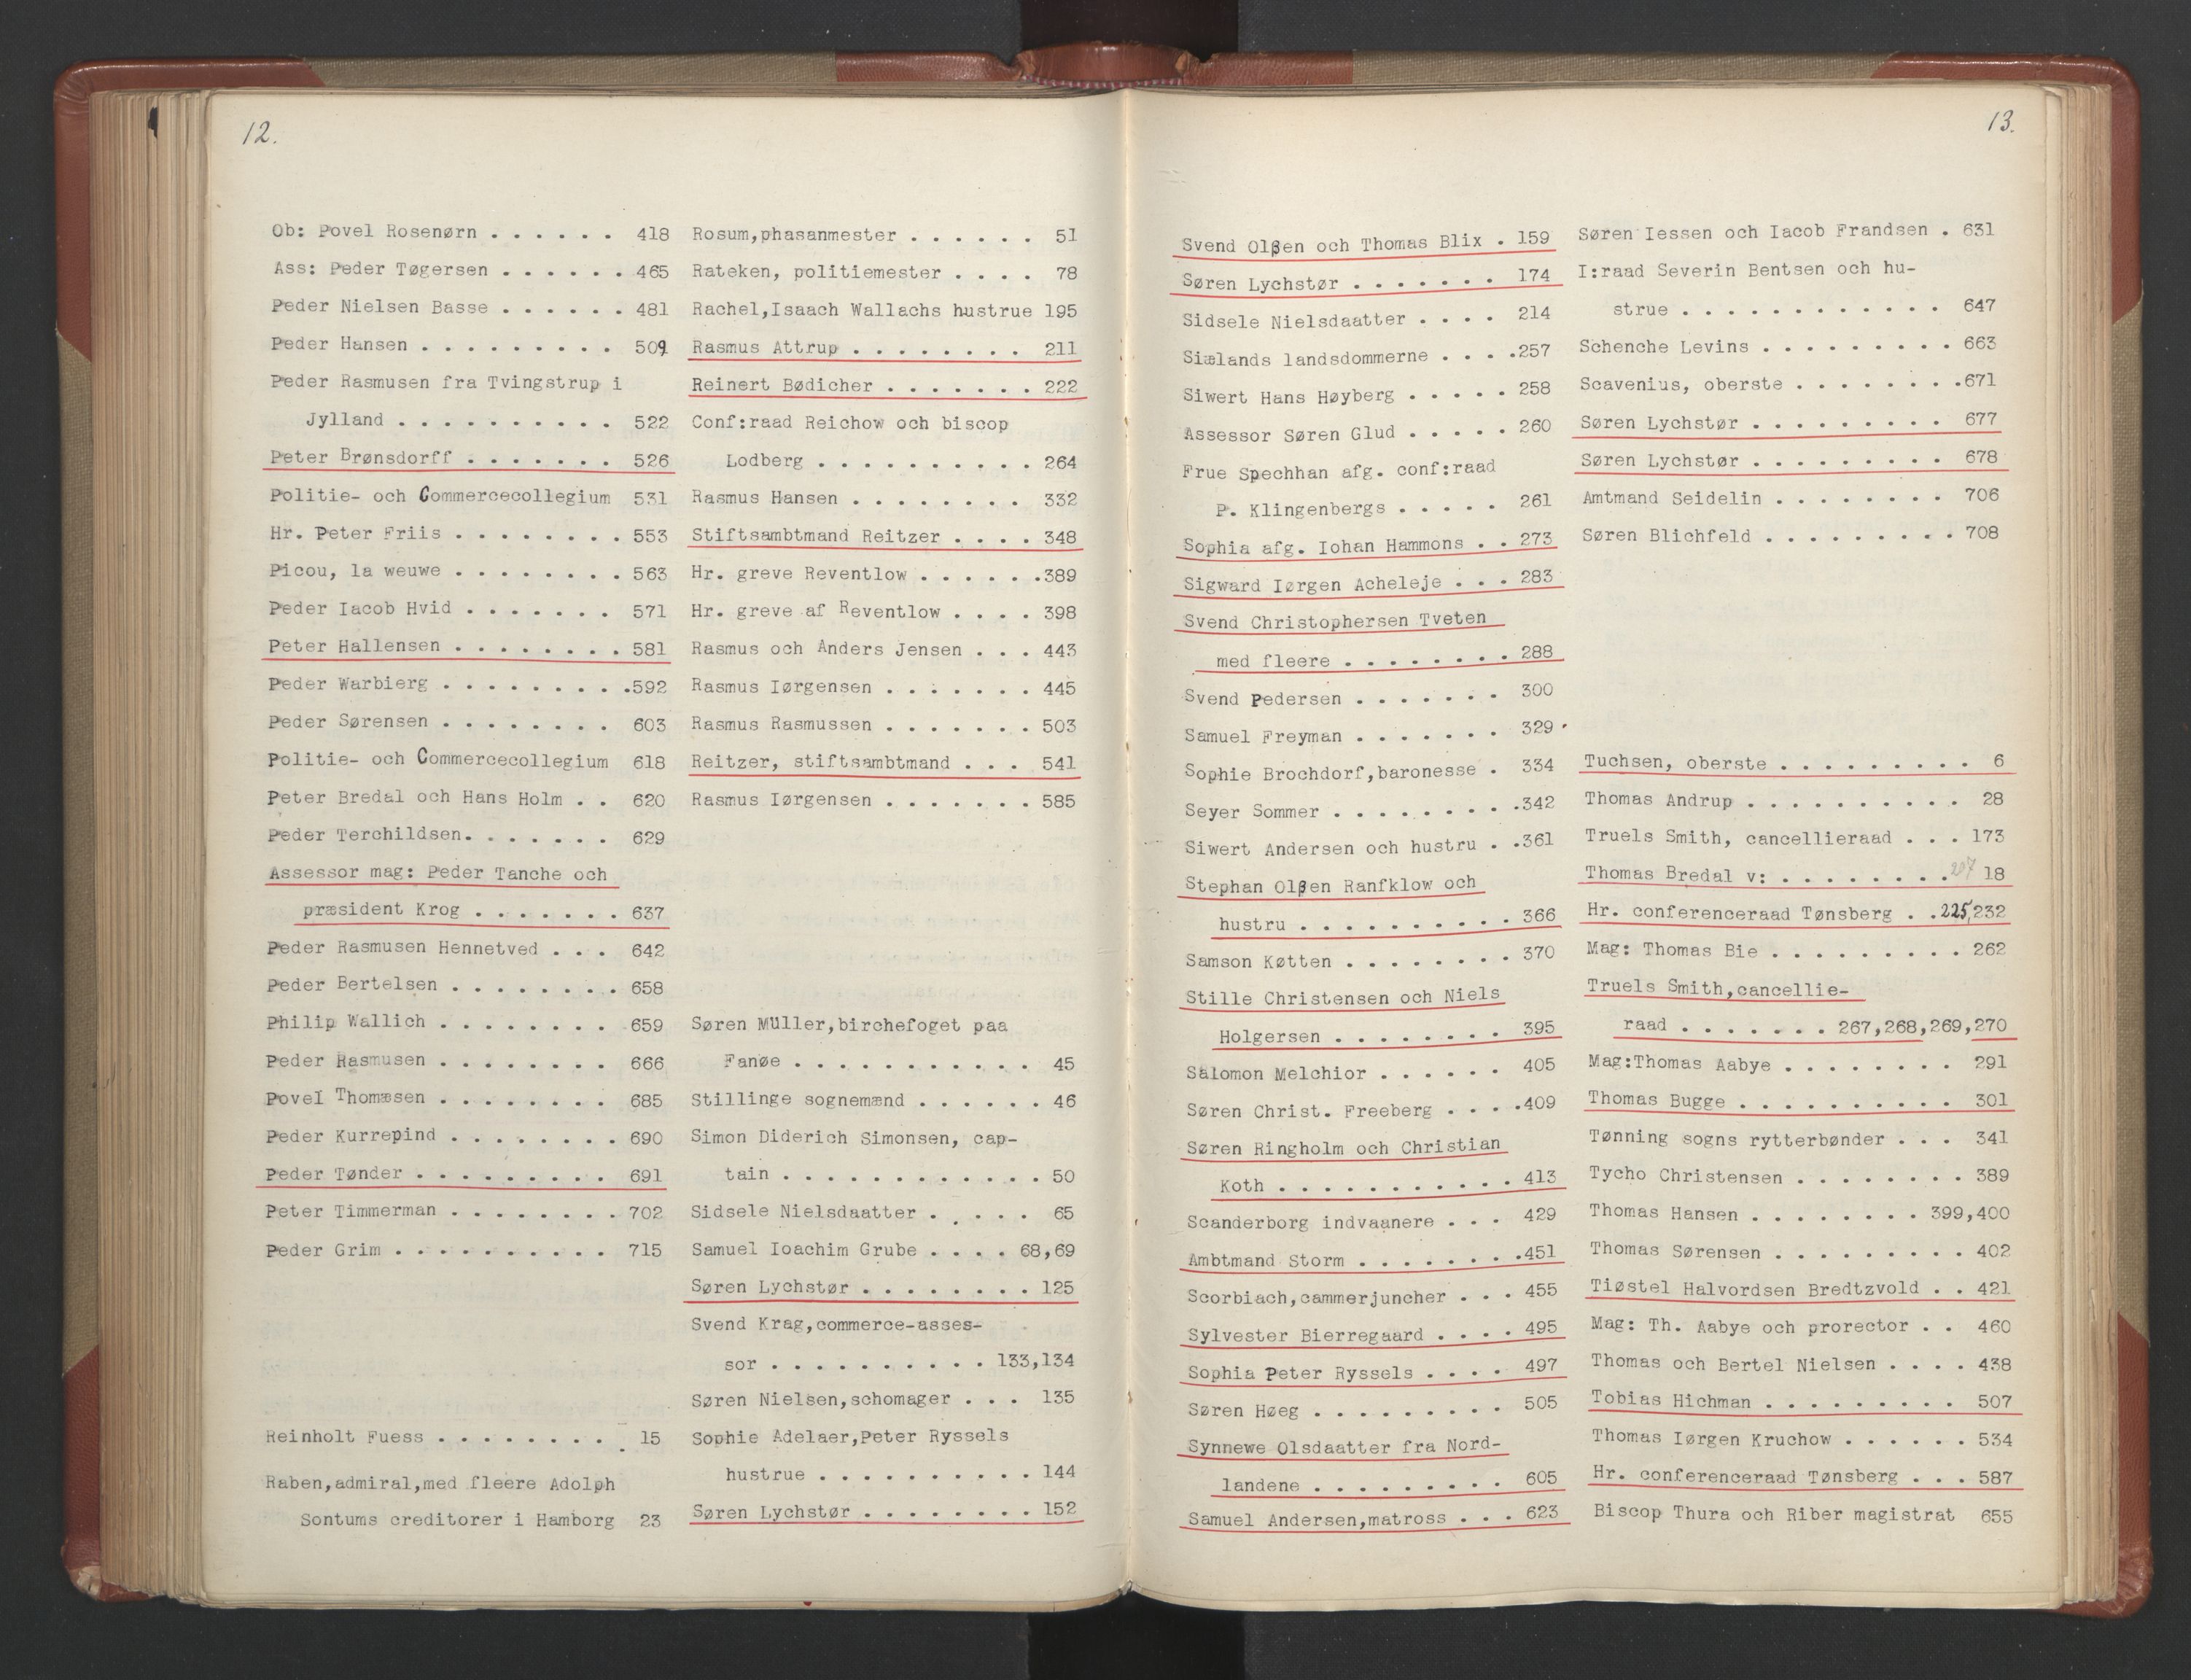 12.
Ob: Povel Rosenørn . . . . . . 418
Ass: Peder Tøgersen . . . . . . 465
Peder Nielsen Basse . . . . . . 481
Peder Hansen . . . . . . . . . 509
Peder Rasmusen fra Tvingstrup i
Jylland . . . . . . . . . . 522
Peter Brønsdorff . . . . . . . 526
Politie- och Commercecollegium 531
Hr. Peter Friis . . . . . . . . 553
Picou, la weuwe . . . . . . . . 563
Peder Iacob Hvid . . . . . . . 571
Peter Hallensen . . . . . . . . 581
Peder Warbierg . . . . . . . . .592
Peder Sørensen . . . . . . . . 603
Politie- och Commercecollegium 618
Peter Bredal och Hans Holm . . 620
Peder Terchildsen. . . . . . . 629
Assessor mag: Peder Tanche och
præsident Krog . . . . . . . 637
Peder Rasmusen Hennetved . . . 642
Peder Bertelsen . . . . . . . . 658
Philip Wallich . . . . . . . . 659
Peder Rasmusen . . . . . . . . 666
Povel Thomæsen . . . . . . . . 685
Peder Kurrepind . . . . . . . . 690
Peder Tønder . . . . . . . . . 691
Peter Timmerman . . . . . . . . 702
Peder Grim . . . . . . . . . . 715
Reinholt Fuess . . . . . . . . . 15
Raben,admiral,med fleere Adolph
Sontums creditorer i Hamborg 23
Rosum,phasanmester . . . . . . 51
Rateken, politiemester . . . . 78
Rachel,Isaach Wallachs hustrue 195
Rasmus Attrup . . . . . . . . 211
Reinert Bødicher . . . . . . . 222
Conf:raad Reichow och biscop
Lodberg . . . . . . . . . . 264
Rasmus Hansen . . . . . . . . 332
Stiftsambtmand Reitzer . . . . 348
Hr. greve Reventlow . . . . . .389
Hr. greve af Reventlow . . . . 398
Rasmus och Anders Jensen . . . 443
Rasmus Iørgensen . . . . . . . 445
Rasmus Rasmussen . . . . . . . 503
Reitzer, stiftsambtmand . . . 541
Rasmus Iørgensen . . . . . . . 585
Søren Müller,birchefoget paa
Fanøe . . . . . . . . . . . 45
Stillinge sognemænd . . . . . . 46
Simon Diderich Simonsen, cap-
tain . . . . . . . . . . . . 50
Sidsele Nielsdaatter . . . . . 65
Samuel Ioachim Grube . . . . 68,69
Søren Lychstør . . . . . . . . 125
Svend Krag,commerce-asses-
sor . . . . . . . . . . 133,134
Søren Nielsen,schomager . . . 135
Sophie Adelaer,Peter Ryssels
hustrue . . . . . . . . . . 144
Søren Lychstør . . . . . . . . 152
13.
Svend Olßen och Thomas Blix . 159
Søren Lychstør . . . . . . . 174
Sidsele Nielsdaatter . . . . 214
Siælands landsdommerne . . . .257
Siwert Hans Høyberg . . . . . 258
Assessor Søren Glud . . . . . 260
Frue Spechhan afg. conf:raad
P. Klingenbergs . . . . . 261
Sophia afg. Iohan Hammons . . 273
Sigward Iørgen Acheleje . . . 283
Svend Christophersen Tveten
med fleere . . . . . . . . 288
Svend Pedersen . . . . . . . 300
Samuel Freyman . . . . . . . 329
Sophie Brochdorf,baronesse . 334
Seyer Sommer . . . . . . . . .342
Siwert Andersen och hustru . .361
Stephan Olßen Ranfklow och
hustru . . . . . . . . . . 366
Samson Køtten . . . . . . . . 370
Stille Christensen och Niels
Holgersen . . . . . . . . 395
Salomon Melchior . . . . . . 405
Søren Christ. Freeberg . . . .409
Søren Ringholm och Christian
Koth . . . . . . . . . . . 413
Scanderborg indvaanere . . . 429
Ambtmand Storm . . . . . . . .451
Scorbiach,cammerjuncher . . . 455
Sylvester Bierregaard . . . . 495
Sophia Peter Ryssels . . . . 497
Søren Høeg . . . . . . . . . 505
Synnewe Olsdaatter fra Nord-
landene . . . . . . . . . 605
Samuel Andersen,matross . . . 623
Søren Iessen och Iacob Frandsen . 631
I:raad Severin Bentsen och hu-
strue . . . . . . . . . . . . 647
Schenche Levins . . . . . . . . . 663
Scavenius, oberste . . . . . . . .671
Søren Lychstør . . . . . . . . . 677
Søren Lychstør . . . . . . . . . 678
Amtmand Seidelin . . . . . . . . 706
Søren Blichfeld . . . . . . . . . 708
Tuchsen, oberste . . . . . . . . . 6
Thomas Andrup . . . . . . . . . . 28
Truels Smith, cancellieraad . . . 173
Thomas Bredal v: . . . . . . . . . 207 18
Hr. conferenceraad Tønsberg . .225,232
Mag: Thomas Bie . . . . . . . . . 262
Truels Smith,cancellie-
raad . . . . . . . 267,268,269,270
Mag:Thomas Aabye . . . . . . . . 291
Thomas Bugge . . . . . . . . . . 301
Tønning sogns rytterbønder . . . 341
Tycho Christensen . . . . . . . . 389
Thomas Hansen . . . . . . . . 399,400
Thomas Sørensen . . . . . . . . . 402
Tiøstel Halvordsen Bredtzvold . . 421
Mag: Th. Aabye och prorector . . 460
Thomas och Bertel Nielsen . . . . 438
Tobias Hichman . . . . . . . . . 507
Thomas Iørgen Kruchow . . . . . . 534
Hr. conferenceraad Tønsberg . . . 587
Biscop Thura och Riber magistrat 655